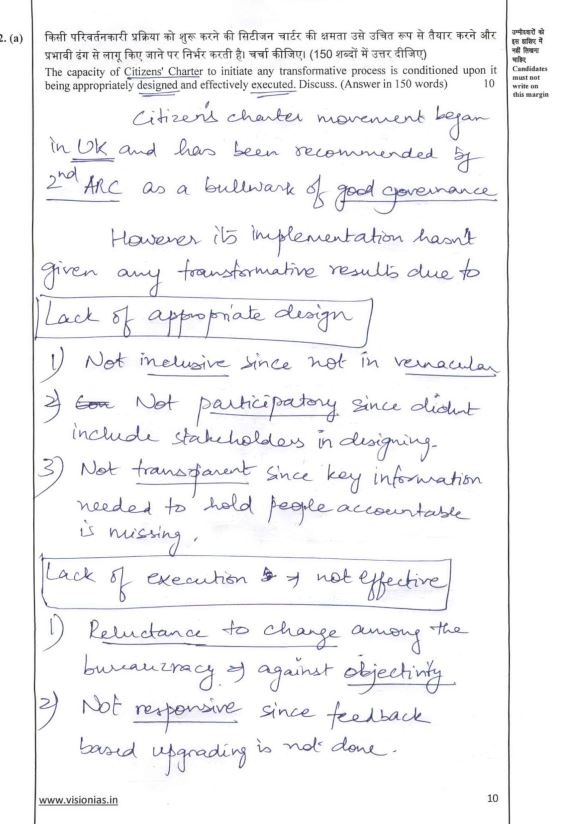 2. (a) किसी परिवर्तनकारी प्रक्रिया को शुरू करने की सिटीजन चार्टर की क्षमता उसे उचित रूप से तैयार करने और
प्रभावी ढंग से लागू किए जाने पर निर्भर करती है। चर्चा कीजिए। (150 शब्दों में उत्तर दीजिए)
The capacity of Citizens' Charter to initiate any transformative process is conditioned upon it
being appropriately designed and effectively executed. Discuss. (Answer in 150 words) 10
उम्मीदवारों को
इस हाशिए में
नहीं लिखना
चाहिए
Candidates
must not
write on
this margin
Citizen's charter movement began
in UK and has been recommended by
2nd ARC as a bullwark of good governance
However its implementation hasn't
given any transformative results due to
Lack of appropriate design
1) Not inclusive since not in vernacular
2) Not participatory since didnt
include stakeholders in designing.
3) Not transparent since key information
needed to hold people accountable
is missing.
Lack of execution → not effective
1) Reluctance to change among the
bureaucracy → against objectivity
2) Not responsive since feedback
based upgrading is not done.
www.visionias.in 10